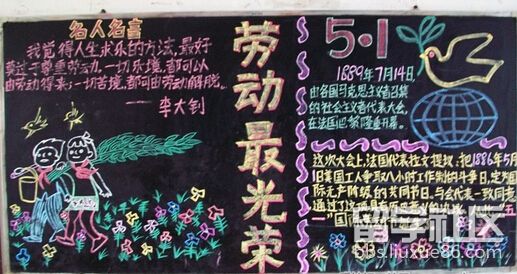 名人名言
我觉得人生求乐的方法,最好
莫过于尊重劳动。一切乐境,都可以
由劳动得来;一切苦境,都可由劳动解脱。
——李大钊
劳动最光荣
5·1
1889年7月14日,
由各国马克思主义者召集
的社会主义者代表大会,
在法国巴黎隆重开幕。
这次大会上,法国代表拉文提议:把1886年5月
1日美国工人争取八小时工作制的斗争日,定为国
际无产阶级的共同节日。与会代表一致同意
通过了这项具有历史意义的
留学社区
bbs.liuxue86.com